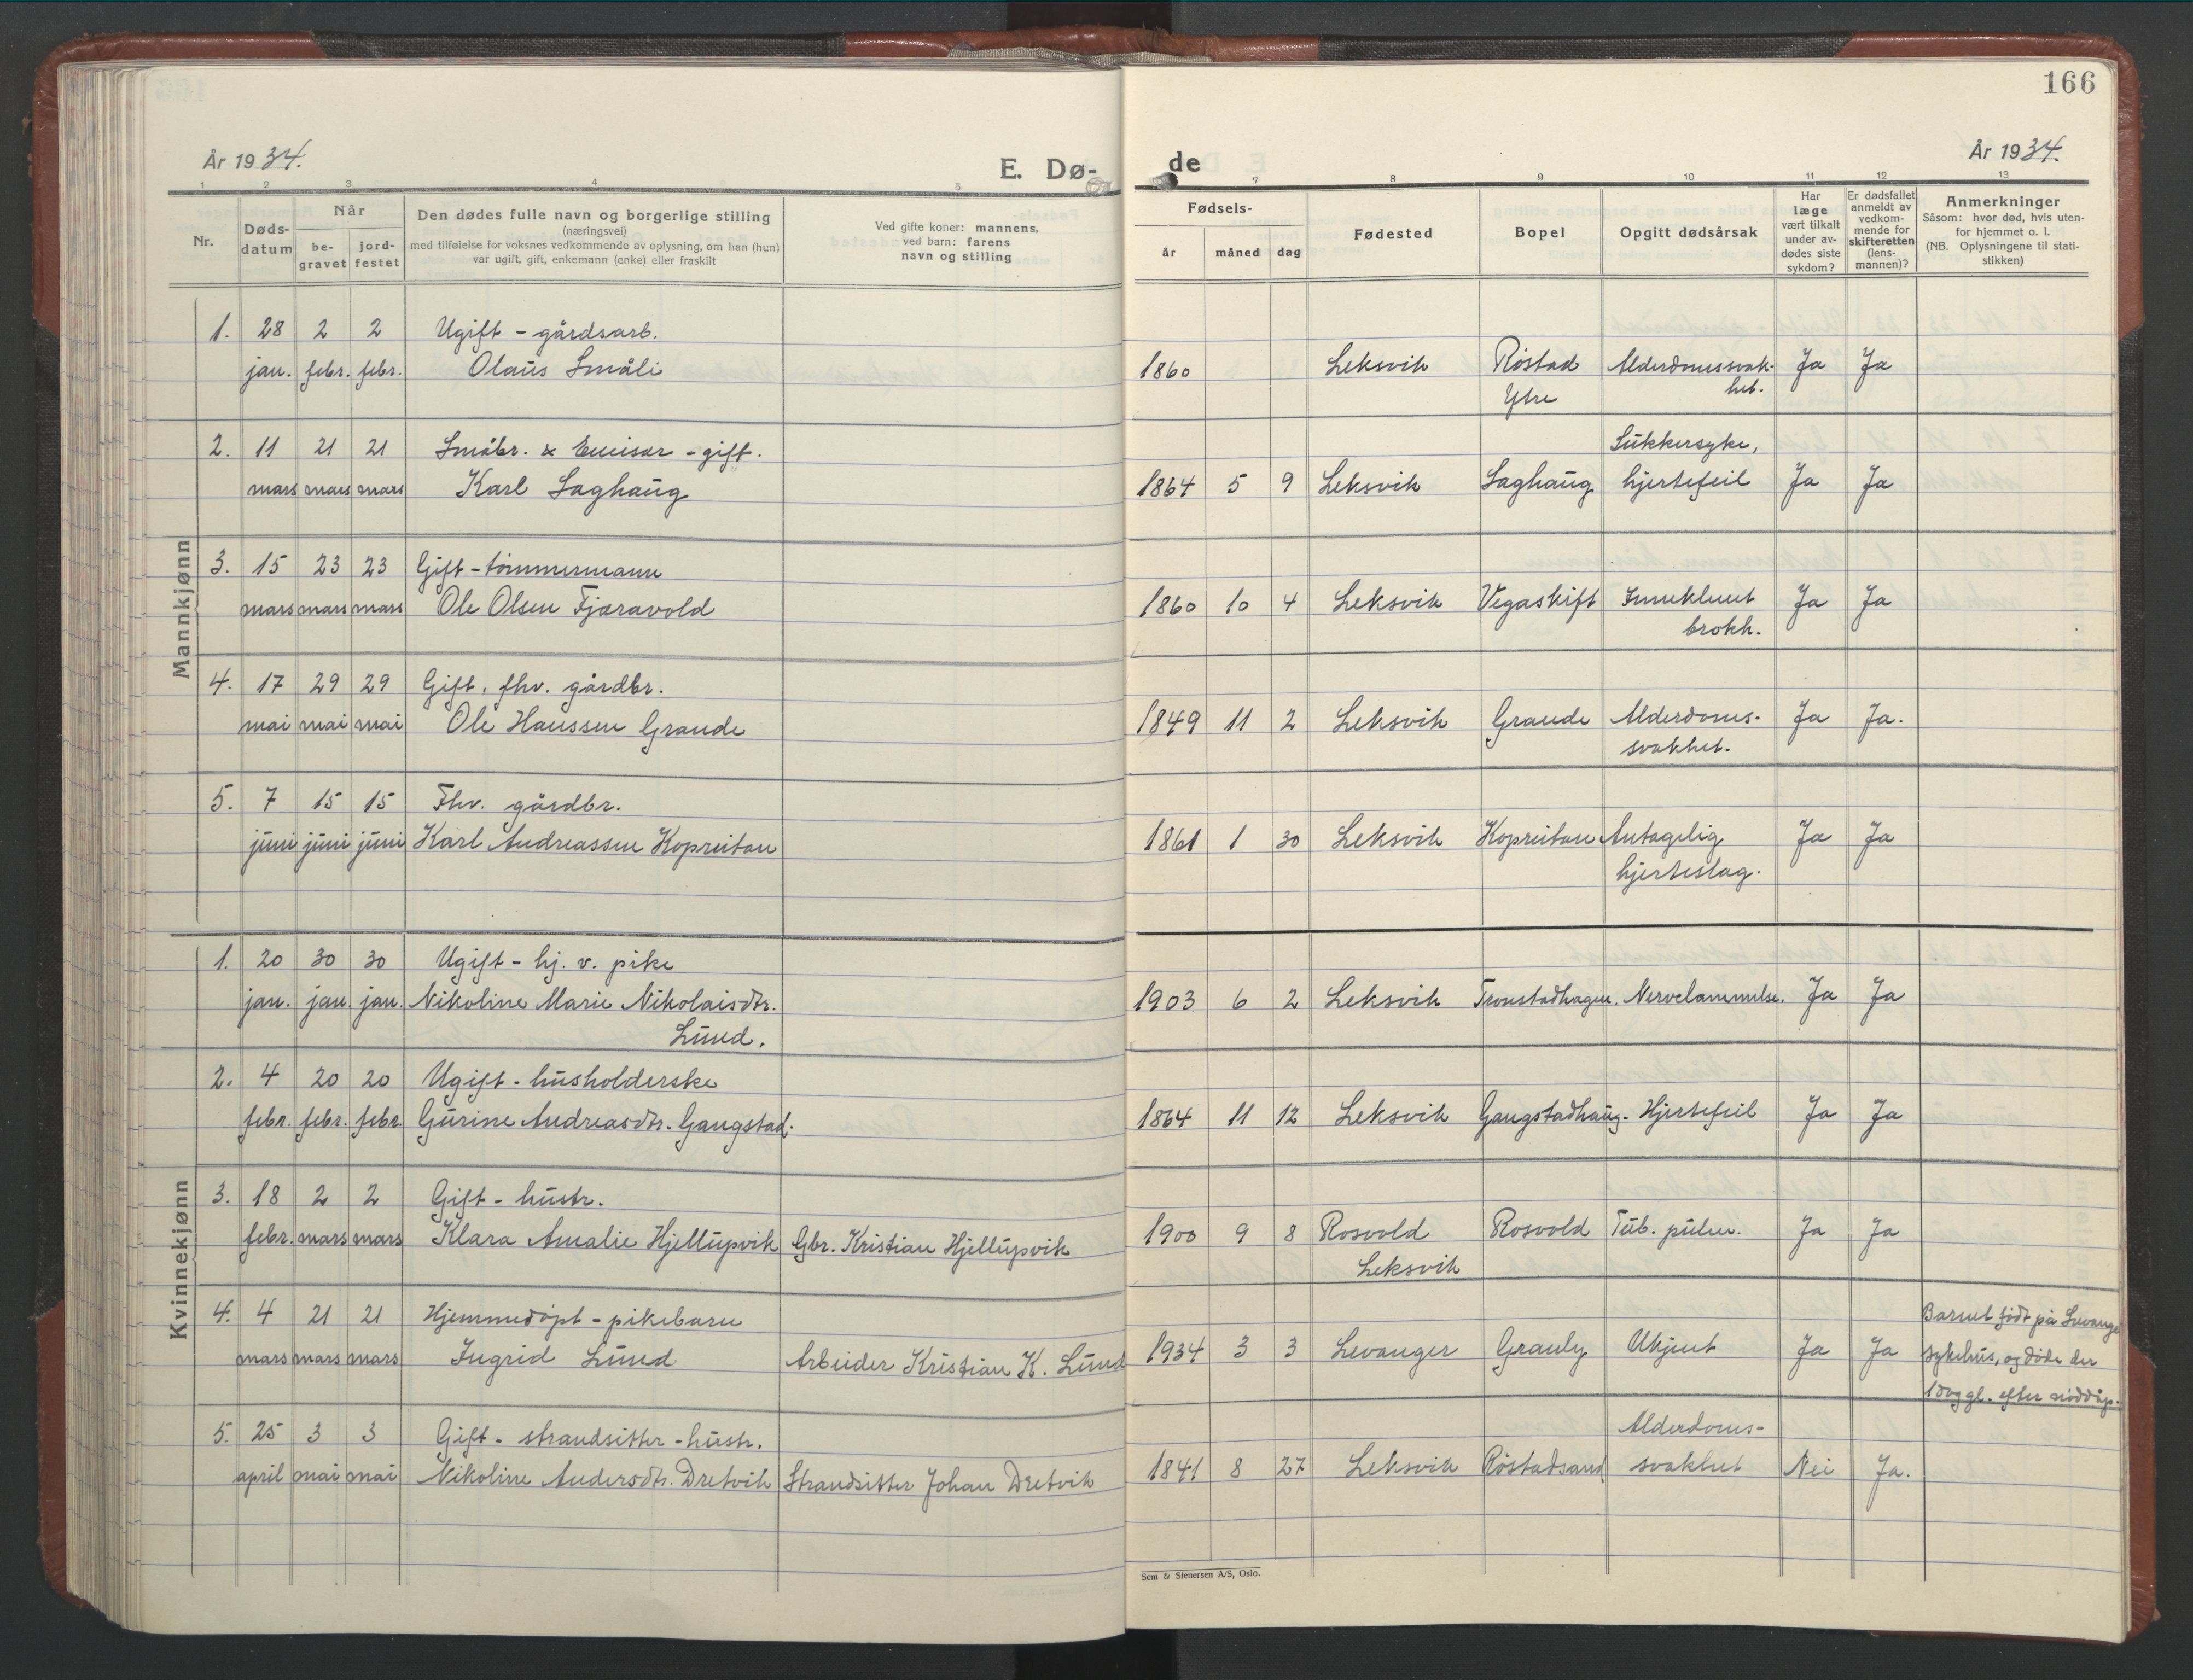 166
År 1934.
E. Dø-de
År 1934.
1 2 3 4 5 7 8 9 10 11 12 13
Nr.
Dødsdatum
Når
begravet
jordfestet
Den dødes fulle navn og borgerlige stilling
(næringsvei)
med tilføielse for voksnes vedkommende av oplysning, om han (hun)
var ugift, gift, enkemann (enke) eller fraskilt
Ved gifte koner: mannens,
ved barn: farens
navn og stilling
Fødsels-
år måned dag
Fødested
Bopel
Opgitt dødsårsak
Har
læge
vært tilkalt
under av-
dødes siste
sykdom?
Er dødsfallet
anmeldt av
vedkom-
mende for
skifteretten
(lens-
mannen)?
Anmerkninger
Såsom: hvor død, hvis uten-
for hjemmet o. l.
(NB. Oplysningene til stati-
stikken)
Mannkjønn
1. 28 2 2 Ugift - gårdsarb.
jan. febr. febr. Olaus Småli 1860 Leksvik Røstad Alderdomssvak- Ja Ja
Ytre het.
2. 11 21 21 Småbr. & Emisær - gift. Sukkersyke,
mars mars mars Karl Saghaug 1864 5 9 Leksvik Saghaug hjertefeil Ja Ja
3. 15 23 23 Gift - tømmermann
mars mars mars Ole Olsen Fjæravold 1860 10 4 Leksvik Vegaskift Inneklemt Ja Ja
brokk.
4. 17 29 29 Gift. fhv. gårdbr.
mai mai mai Ole Hanssen Grande 1849 11 2 Leksvik Grande Alderdoms- Ja Ja.
svakhet.
5. 7 15 15 Fhv. gårdbr.
juni juni juni Karl Andreassen Kopreitan 1861 1 30 Leksvik Kopreitan Antagelig Ja Ja
hjerteslag.
Kvinnekjønn
1. 20 30 30 Ugift - hj. v. pike
jan. jan. jan. Nikoline Marie Nikolaisdtr. 1903 6 2 Leksvik Tronstadhagen. Nervelammelse. Ja Ja
Lund.
2. 4 20 20 Ugift - husholderske
febr. febr. febr. Gurine Andreasdtr. Gangstad. 1864 11 12 Leksvik Gangstadhaug. Hjertefeil Ja Ja
3. 18 2 2 Gift - hustr.
febr. mars mars Klara Amalie Hjellupvik Gbr. Kristian Hjellupvik 1900 9 8 Rosvold Rosvold Tub. pulm. Ja Ja
Leksvik
4. 4 21 21 Hjemmedøpt - pikebarn Barnet født på Levanger
mars mars mars Ingrid Lund Arbeider Kristian K. Lund 1934 3 3 Levanger Granly Ukjent Ja Ja sykehus, og døde der
1 dag gl. efter nøddåp.
5. 25 3 3 Gift - strandsitter - hustr. Alderdoms-
april mai mai Nikoline Andersdtr. Dretvik Strandsitter Johan Dretvik 1841 8 27 Leksvik Røstadsand svakhet Nei Ja.
Sem & Stenersen A/S, Oslo.